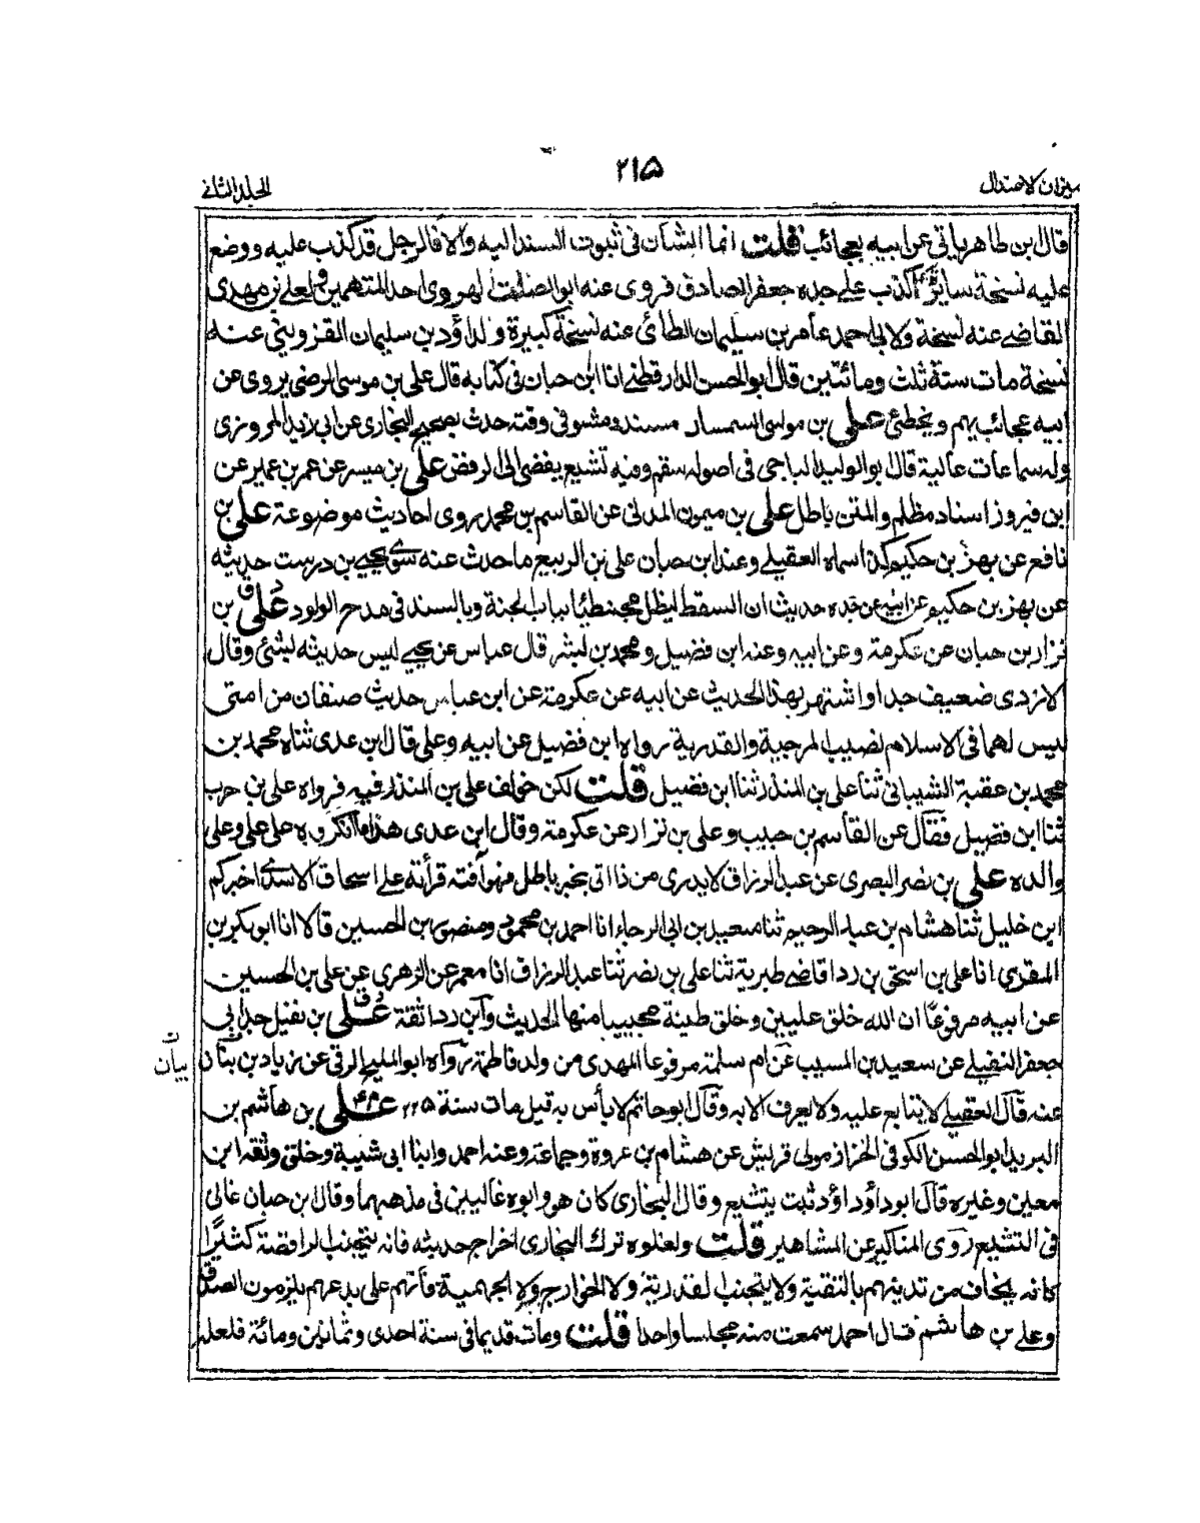 ميزان الاعتدال
٢١٥
الجلد الثاني
قال ابن طاهر ياتي عن ابيه بعجائب قلت انما الشان في ثبوت السند اليه والا فالرجل قد كذب عليه ووضع
عليه نسخة سايرها الكذب على جده جعفر الصادق فروى عنه ابو الصلت الهروي احد المتهمين ولعلي بن مهدي
القاضي عنه نسخة ولابي احمد عامر بن سليمان الطائي عنه نسخة كبيرة ولداؤد بن سليمان القزويني عنه
نسخة مات ستة ثلث ومائتين قال ابو الحسن الدارقطني انا ابن حبان في كتابه قال علي بن موسى الرضي يروي عن
ابيه عجائب يهم ويخطئ علي بن موسى السمسار مسند دمشق في وقته حدث بصحيح البخاري عن ابي زيد المروزي
وله سماعات عالية قال ابو الوليد الباجي في اصوله سقم وفيه تشيع يفضي الى الرفض علي بن ميسر عن عمر بن عمير عن
ابن فيروز اسناد مظلم والمتن باطل علي بن ميمون المدني عن القاسم بن محمد يروي احاديث موضوعة علي بن
نافع عن بهز بن حكيم كذا سماه العقيلي وعند ابن حبان علي بن الربيع ما حدث عنه سوى يحيى بن درست حديثه
عن بهز بن حكيم عن ابيه عن جده حديث ان السقط ليظل محبنطيا بباب الجنة وبالسند في مدح الولود علي بن
نزار بن حبان عن عكرمة وعن ابيه وعنه ابن فضيل ومحمد بن بشر قال عباس عن يحيى ليس حديثه لبشئ وقال
الازدي ضعيف جدا واشتهر بهذا الحديث عن ابيه عن عكرمة عن ابن عباس حديث صنفان من امتى
ليس لهما في الاسلام نصيب المرجية والقدرية رواه ابن فضيل عن ابيه وعلي قال ابن عدي ثناه محمد بن
محمد بن عقبة الشيباني ثنا علي بن المنذر ثنا ابن فضيل قلت لكن خولف علي بن المنذر فيه فرواه علي بن حرب
ثنا ابن فضيل فقال عن القاسم بن حبيب وعلي بن نزار عن عكرمة وقال ابن عدي هذا ما انكروه على علي وعلى
والده علي بن نصر البصري عن عبد الرزاق لا يدرى من ذا اتى بخبر باطل فهو آفته قرأته على اسحاق الاسدي اخبركم
ابن خليل ثنا هشام بن عبد الرحيم ثنا سعيد بن ابي الرجاء انا احمد بن محمود ومنصور بن الحسين قالا انا ابو بكر بن
المقري انا علي بن اسحق بن ردا قاضي طبرية ثنا علي بن نصر ثنا عبد الرزاق انا معمر عن الزهري عن علي بن الحسين
عن ابيه مرفوعا ان الله خلق عليين وخلق طينة محبيبا منها الحديث وابن ردا ثقة علي بن نفيل جد ابي
جعفر النفيلي عن سعيد بن المسيب عن ام سلمة مرفوعا المهدي من ولد فاطمة رواه ابو المليح الرقي عن زياد بن بنان
بيان
عنه قال العقيلي لا يتابع عليه ولا يعرف الا به وقال ابو حاتم لا باس به قيل مات سنة ٢٢٥ علي بن هاشم بن
البريد ابو الحسن الكوفي الخزاز مولى قريش عن هشام بن عروة وجماعة وعنه احمد وابنا ابي شيبة وخلق وثقه ابن
معين وغيره قال ابو داؤد ثبت يتشيع وقال البخاري كان هو وابوه غاليين في مذهبهما وقال ابن حبان غالي
في التشيع روى المناكير عن المشاهير قلت ولغلوه ترك البخاري اخراج حديثه فانه يتجنب الرافضة كثيرا
كانه يخاف من تدينهم بالتقية ولا يتجنب القدرية ولا الخوارج ولا الجهمية فانهم على بدعهم يلزمون الصدق
وعلي بن هاشم قال احمد سمعت منه مجلسا واحدا قلت ومات قديما في سنة احدى وثمانين ومائة فلعله